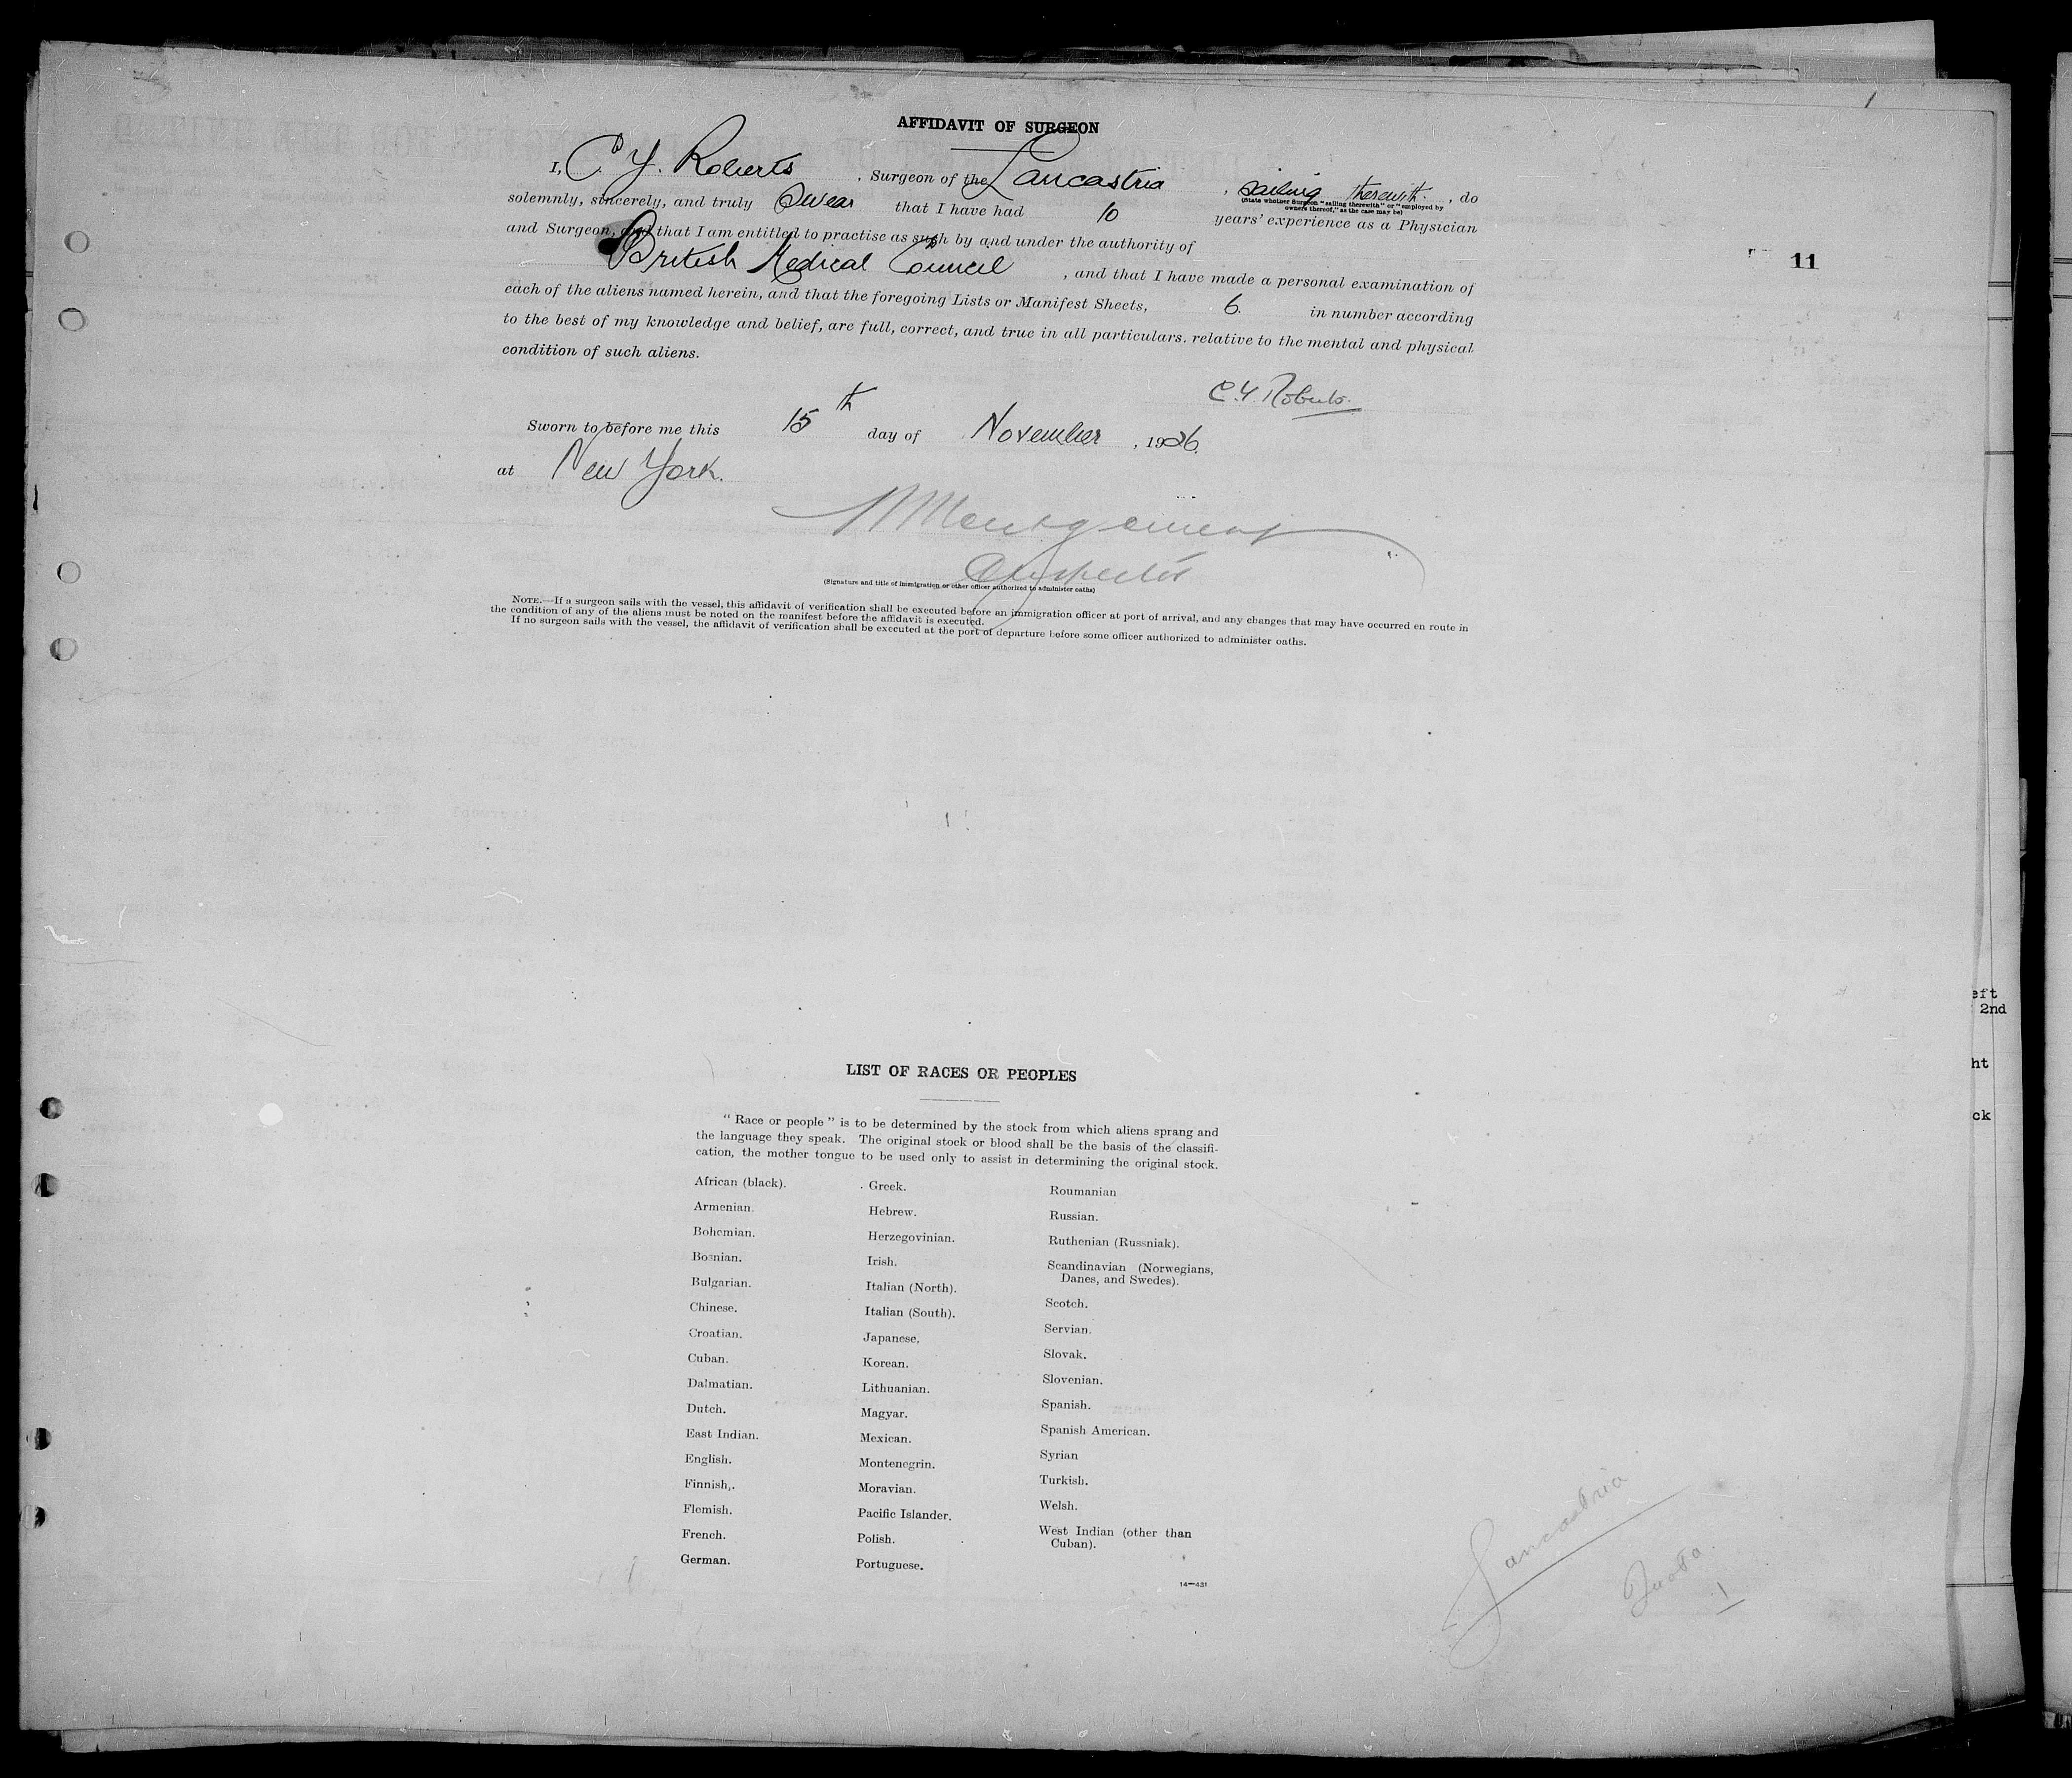 AFFIDAVIT OF SURGEON
I, C. Y. Roberts, Surgeon of the Lancastria, sailing therewith, do
(State whether Surgeon "sailing therewith" or "employed by
owners thereof," as the case may be)
solemnly, sincerely, and truly Swear that I have had 10 years' experience as a Physician
and Surgeon, and that I am entitled to practise as such by and under the authority of
British Medical Council, and that I have made a personal examination of
each of the aliens named herein, and that the foregoing Lists or Manifest Sheets, 6. in number according
to the best of my knowledge and belief, are full, correct, and true in all particulars, relative to the mental and physical
condition of such aliens.
C. Y. Roberts.
Sworn to before me this 15th day of November, 1926.
at New York.
Inspector
(Signature and title of immigration or other officer authorized to administer oaths)
NOTE.—If a surgeon sails with the vessel, this affidavit of verification shall be executed before an immigration officer at port of arrival, and any changes that may have occurred en route in
the condition of any of the aliens must be noted on the manifest before the affidavit is executed.
If no surgeon sails with the vessel, the affidavit of verification shall be executed at the port of departure before some officer authorized to administer oaths.
1
11
eft
2nd
ht
ck
LIST OF RACES OR PEOPLES
"Race or people" is to be determined by the stock from which aliens sprang and
the language they speak. The original stock or blood shall be the basis of the classifi-
cation, the mother tongue to be used only to assist in determining the original stock.
African (black).
Armenian.
Bohemian.
Bosnian.
Bulgarian.
Chinese.
Croatian.
Cuban.
Dalmatian.
Dutch.
East Indian.
English.
Finnish.
Flemish.
French.
German.
Greek.
Hebrew.
Herzegovinian.
Irish.
Italian (North).
Italian (South).
Japanese.
Korean.
Lithuanian.
Magyar.
Mexican.
Montenegrin.
Moravian.
Pacific Islander.
Polish.
Portuguese.
Roumanian
Russian.
Ruthenian (Russniak).
Scandinavian (Norwegians,
Danes, and Swedes).
Scotch.
Servian.
Slovak.
Slovenian.
Spanish.
Spanish American.
Syrian
Turkish.
Welsh.
West Indian (other than
Cuban).
14—431
Lancastria
Quota.
1